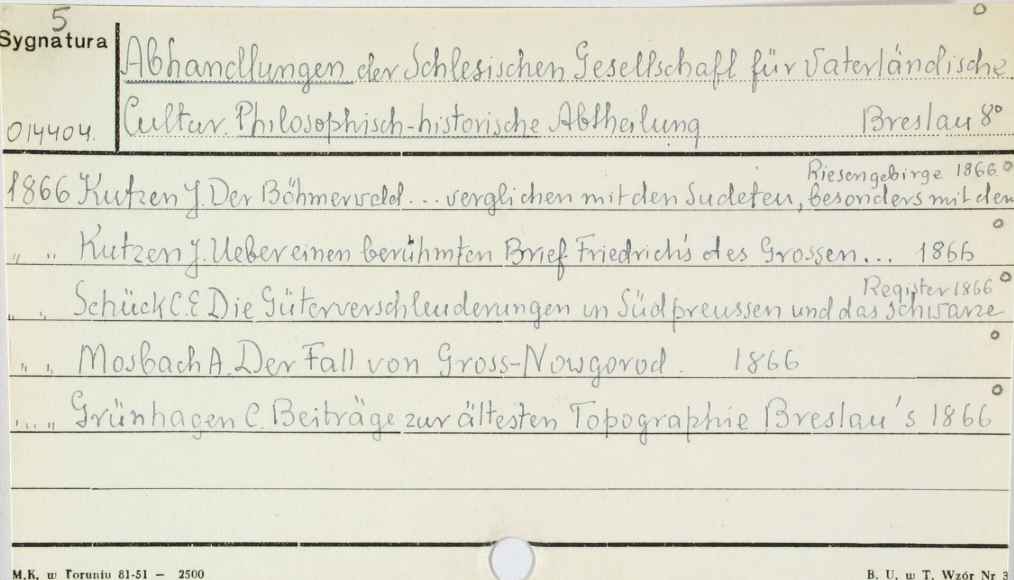 5
Sygnatura
Abhandlungen der Schlesischen Gesellschaft für Vaterländische
014404. Cultur. Philosophisch-historische Abtheilung Breslau 8°
Riesengebirge 1866
1866 Kutzen J. Der Böhmerwald... verglichen mit den Sudeten, besonders mit dem
" " Kutzen J. Ueber einen berühmten Brief Friedrich's des Grossen... 1866
Register 1866
" " Schück C.E Die Güterverschleuderungen in Südpreussen und das Schwarze
" " Mosbach A. Der Fall von Gross-Nowgorod. 1866
" " Grünhagen C. Beiträge zur ältesten Topographie Breslau's 1866
M.K. w Toruniu 81-51 — 2500 B. U. w T. Wzór Nr 3